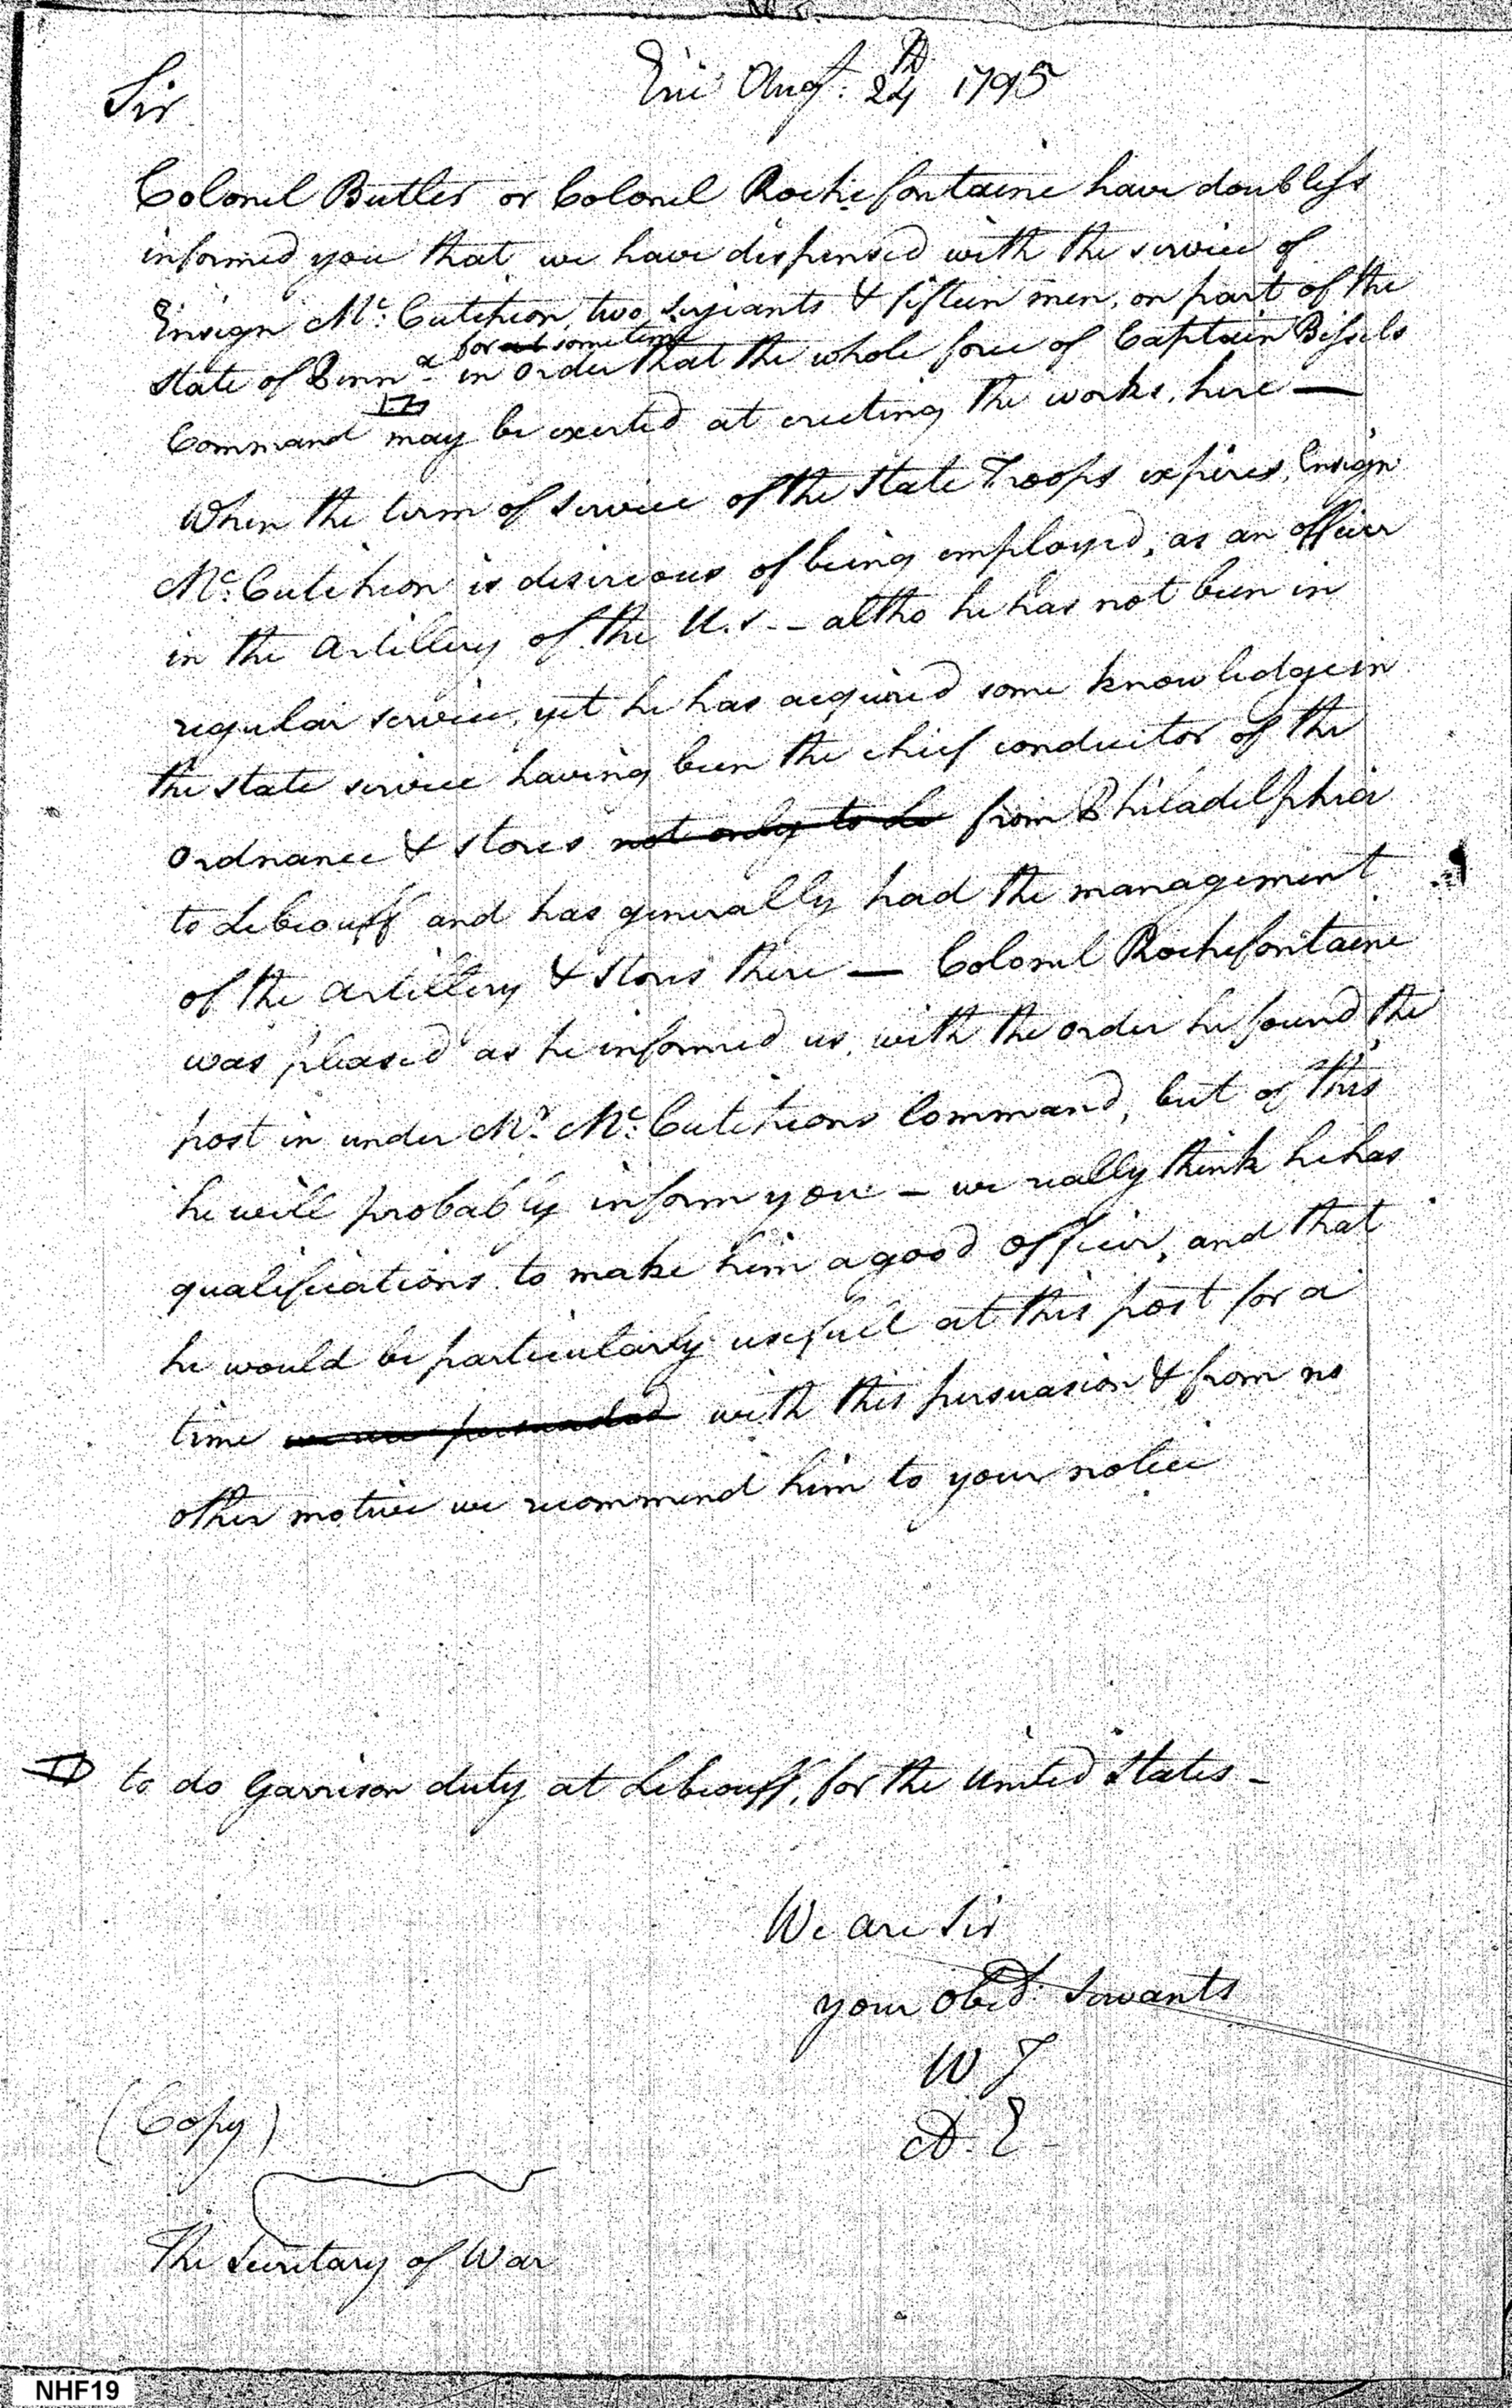 Sir
Erie Augt. 24th 1795
Colonel Butler or Colonel Rochefontaine have doubless
informed you that we have dispensed with the service of
Ensign Mc. Cutcheon, two serjeants & fifteen men, on part of the
for at sometime
state of Penna. in order that the whole force of Captain Bissels
Command may be exerted at erecting the works, here —
When the term of service of the state Troops expires, Ensign
Mc. Cutcheon is desireous of being employed, as an officer
in the artillery of the U.S. - altho he has not been in
regular service, yet he has acquired some knowledge in
the state service having been the chief conductor of the
Ordnance & stores not only to Le from Philadelphia
to Lebeouff and has generally had the management
of the artillery & stores there — Colonel Rochefontaine
was pleased as he informed us, with the order he found the
post in under Mr. Mc. Cutcheons Command, but of this
he will probably inform you - we really think he has
qualifications to make him a good officer, and that
he would be particularly usefull at this post for a
time we are persuaded with this persuasion & from no
other motive we recommend him to your notice
to do Garrison duty at Lebeouff, for the United States -
We are Sir
your Obedt. Servants
W J
A. E
(Copy)
The Secretary of War
NHF19